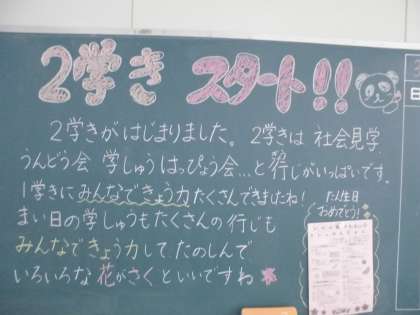 2学き スタート!!
2学きがはじまりました。2学きは 社会見学
うんどう会 学しゅうはっぴょう会…と行じがいっぱいです。
1学きに みんなできょう力 たくさんできましたね!
まい日の学しゅうもたくさんの行じも
みんなできょう力して、たのしんで
いろいろな花がさくといいですね
たん生日
おめでとう!
日